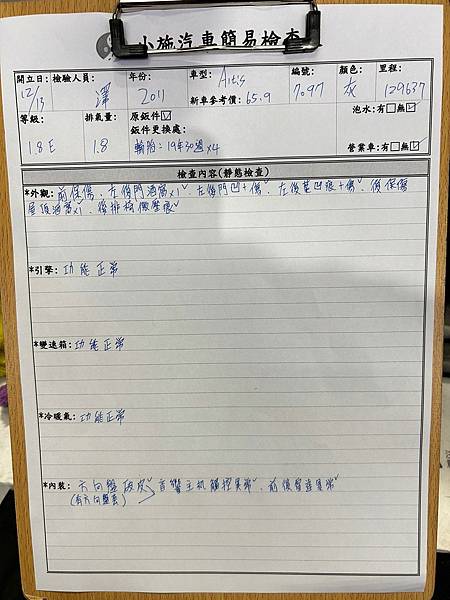 小施汽車簡易檢查
開立日: 檢驗人員: 年份: 車型: Altis 編號: 顏色: 里程:
12/13 澤 2011 新車參考價: 65.9 7097 灰 129637
等級: 排氣量: 原鈑件☑ 泡水:有□無☑
鈑件更換處:
1.8E 1.8 輪胎:19年30週x4 營業車:有□無☑
檢查內容(靜態檢查)
*外觀: 前保傷、左前門酒窩x1、左後門凹+傷、左後葉凹痕+傷、後保傷
屋頂酒窩x1、後排檔微壓痕
*引擎: 功能正常
*變速箱: 功能正常
*冷暖氣: 功能正常
*內裝: 方向盤破皮 音響主机觸控異常、前
(有方向盤套)